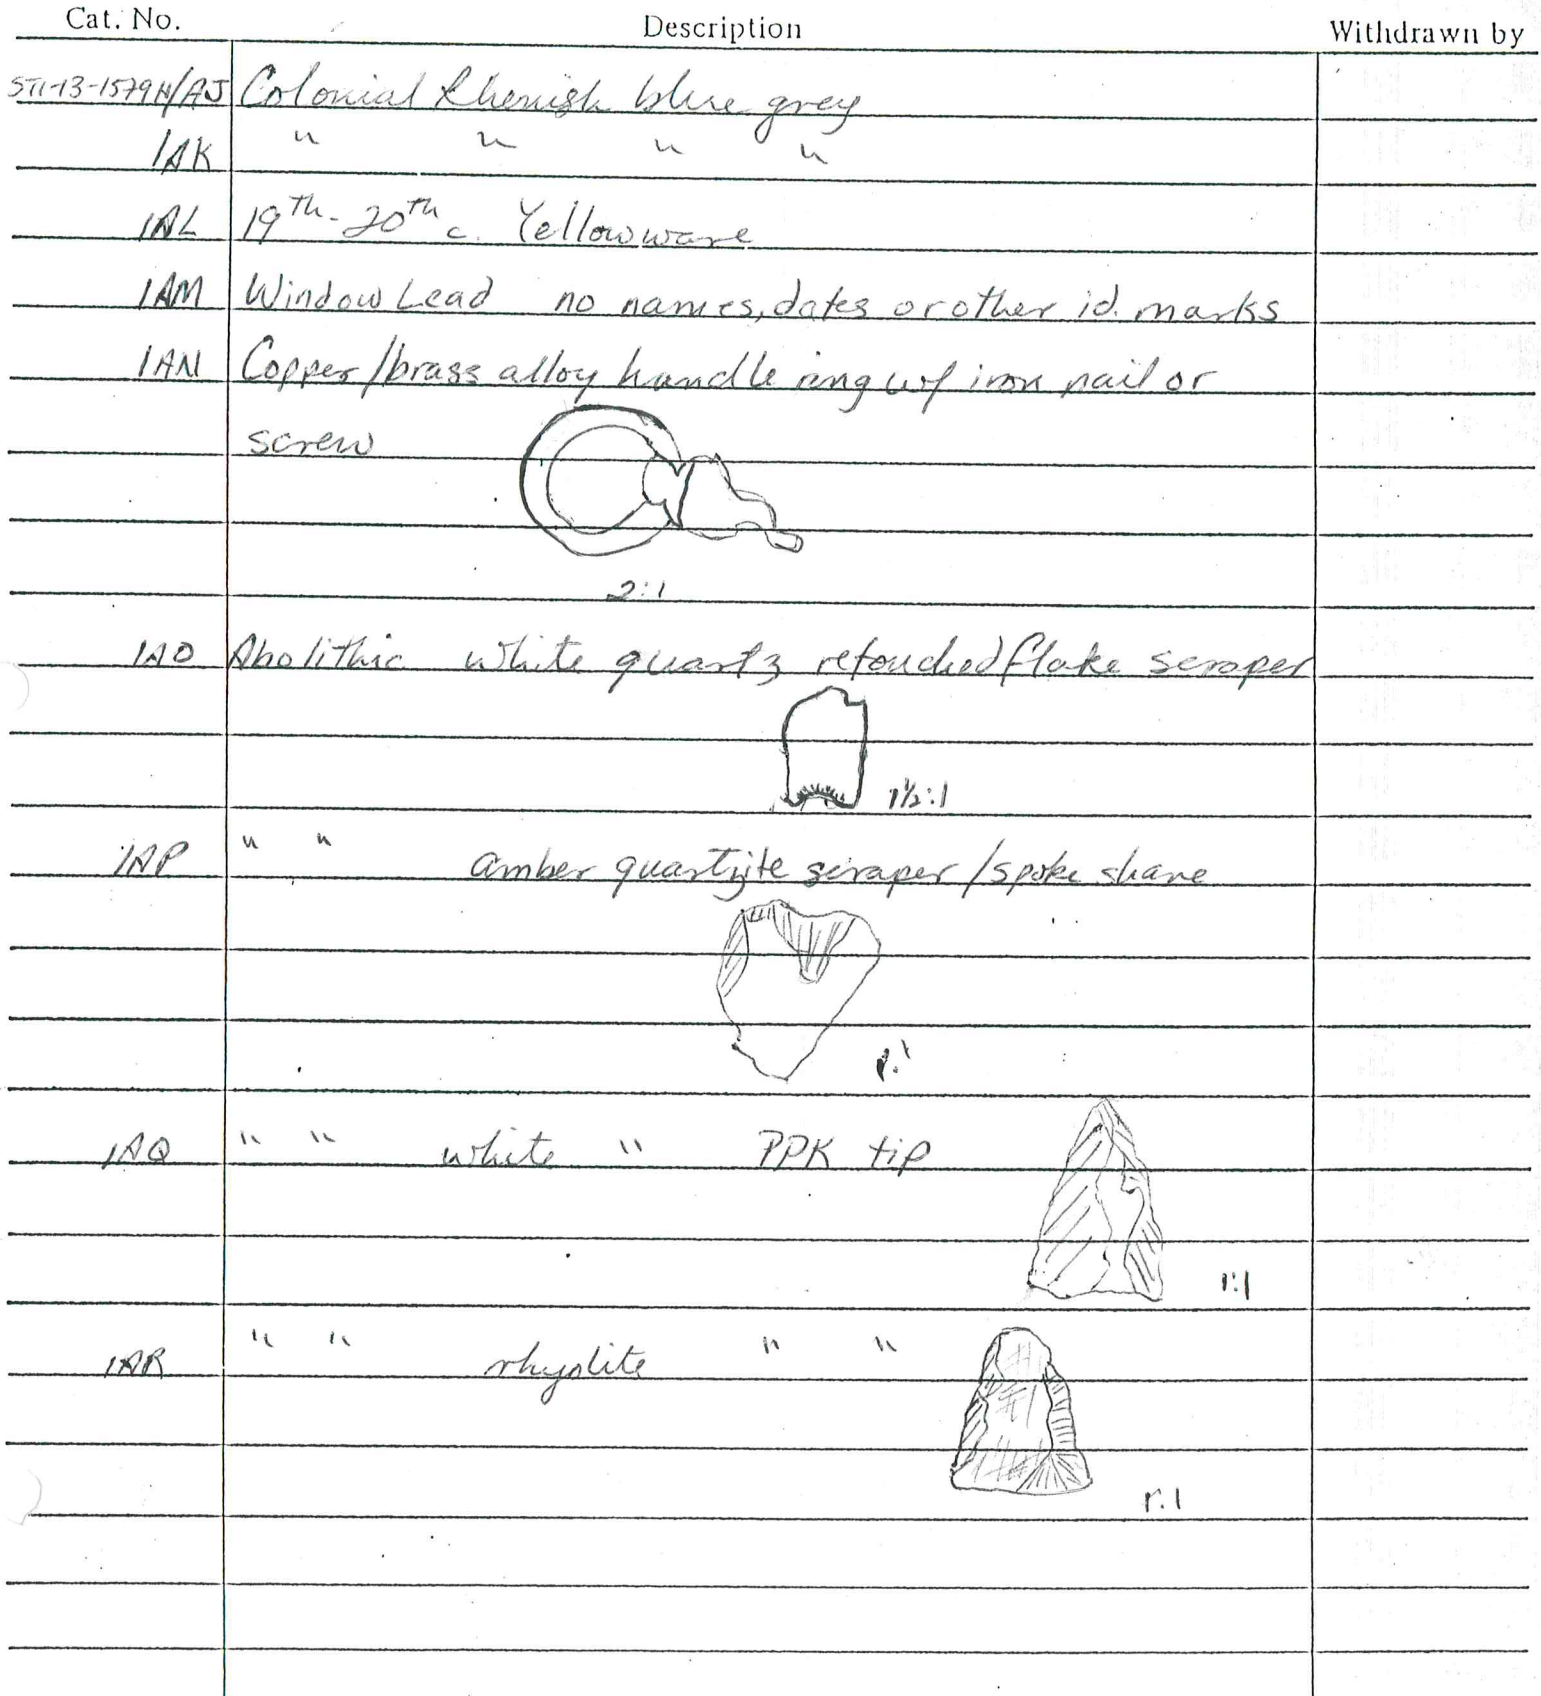 Cat. No. Description Withdrawn by
ST1-13-1579H/AJ Colonial Rhenish blue grey
/AK " " " "
/AL 19th-20th c. Yellowware
/AM Window Lead no names, dates or other id. marks
/AN Copper/brass alloy handle ring w/ iron nail or
screw
2:1
/AO Abolithic white quartz retouched flake scraper
1½:1
/AP " " amber quartzite scraper/spoke shave
1:1
/AQ " " white " PPK tip
1:1
/AR " " rhyolite " "
1:1